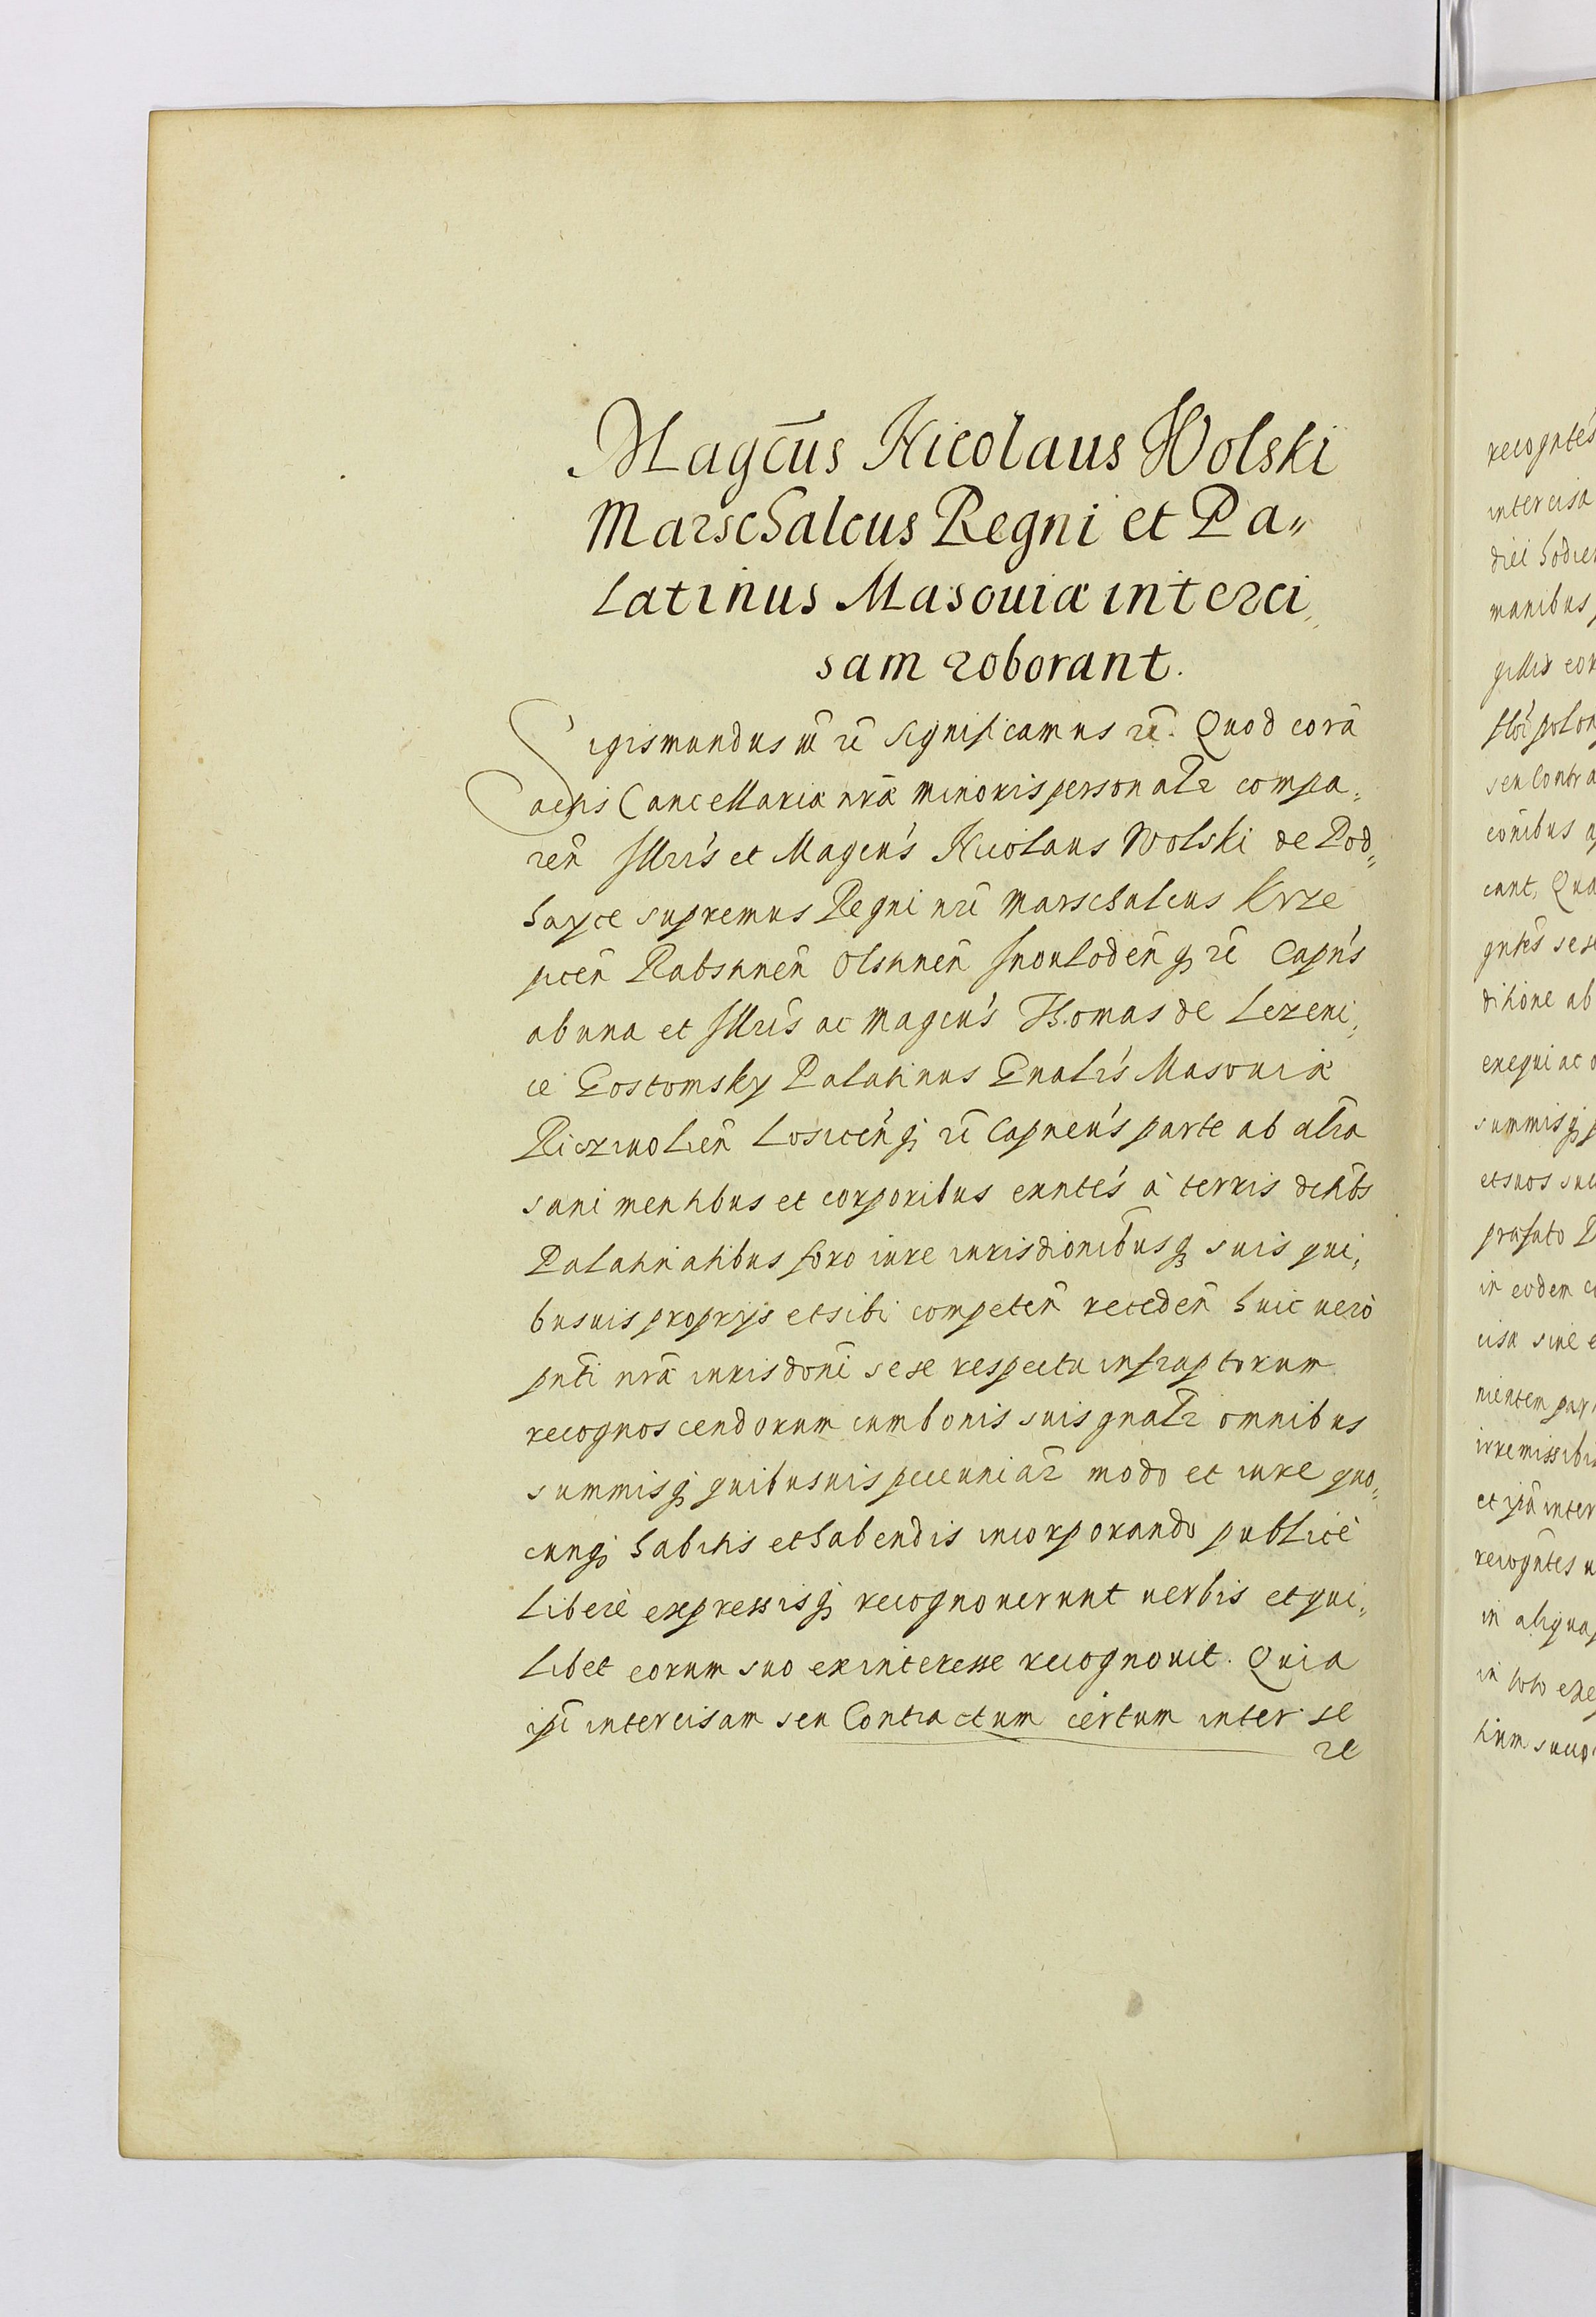 Magcūs Nicolaus Wolski
Marschalcus Regni et Pa„
latinus Masouiæ interci„
sam roborant.
Sigismundus III rē significamus rē. Quod corā
actis Cancellariæ nr̄æ minoris personalr compa„
ren̄ Illris et Magcus Nicolaus Wolski de Pod„
hayce supremus Regni nrī Marschalcus Krze
picen̄ Rabstinen̄ Olstinen̄ Inoulodenq̄ rē Capn's
ab una et Illris ac Magcus Thomas de Lezeni„
ce Gostomsky Palatinus Gnalis Masouiæ
Riczivolien̄ Losicenq̄ rē Capneus parte ab alīa
sani mentibus et corporibus exntes à terris dictibs
Palatinatibus foro iure iurisdionibusq̄ suis qui„
busuis proprijs et sibi competen̄ receden̄ huic uerò
pnti nr̄æ iurisdoni sese respectu infraptorum
recognoscendorum cum bonis suis gnalr omnibus
summisq̄ quibusuis pecuniar modo et iure quo„
cunq̄ habitis et habendis incorporando publicè
liberè expressisq̄ recognouerunt uerbis et qui„
libet eorum suo exinteresse recognouit. Quia
ipī intercisam seu Contractum certum inter se
re
recogntes
intercisa
diei hodier
manibus
gillis
polon
seu Contra
cant, Qua
gntes sese
ditione ab
exequi ac
summisq̄
et suos suc
præfato
in eodem
cisa siue
nientem
irremissibi
et ipā inter
recogntes
in aliqua
in toto exe